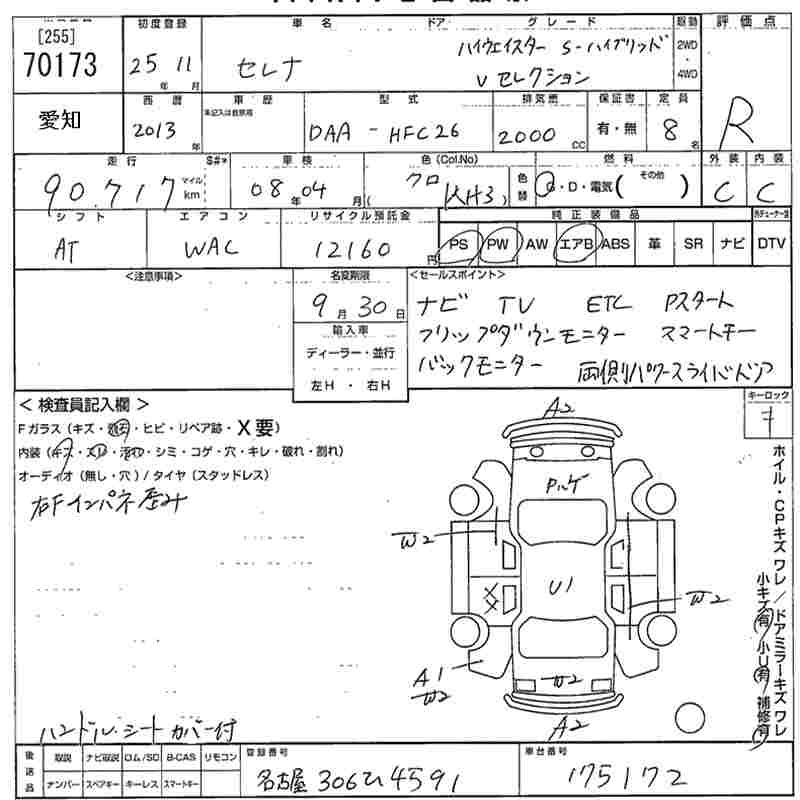 [255]
70173
初度登録 車名 ドア グレード 駆動 評価点
25年 11月 セレナ ハイウェイスター S-ハイブリッド
Vセレクション
2WD・4WD
愛知
西暦 車歴 型式 排気量 保証書 定員
※記入は自家用
2013年 DAA-HFC26 2000CC 有・無 8名 R
走行 S#* 車検 色(Col.No) 燃料 外装 内装
90.717 マイル km 08年 04月 ( クロ KH3) 色替 G・D・電気( その他 ) C C
シフト エアコン リサイクル預託金 純正装備品
AT WAC 12160円 PS PW AW エアB ABS 革 SR ナビ DTV
<注意事項> 名変期限 <セールスポイント>
9月30日
ナビ TV ETC Pスタート
フリップダウンモニター スマートキー
バックモニター 両側パワースライドドア
輸入車
ディーラー・並行
左H・右H
<検査員記入欄> キーロック
キ
Fガラス(キズ・・ヒビ・リペア跡・X要)
内装(キズ・スレ・汚れ・シミ・コゲ・穴・キレ・破れ・割れ)
オーディオ(無し・穴)/タイヤ(スタッドレス)
右Fインパネ歪み
A2
W2
U1
XX
W2
A1
W2
W2
A2
ホイル・CPキズワレ/ドアミラーキズワレ
小キズ有 小U有 補修有
ハンドル、シートカバー付
後送品 取説 ナビ取説 ロム/SD B-CAS リモコン
ナンバー スペアキー キーレス スマートキー
登録番号 車台番号
名古屋 306ひ4591 175172